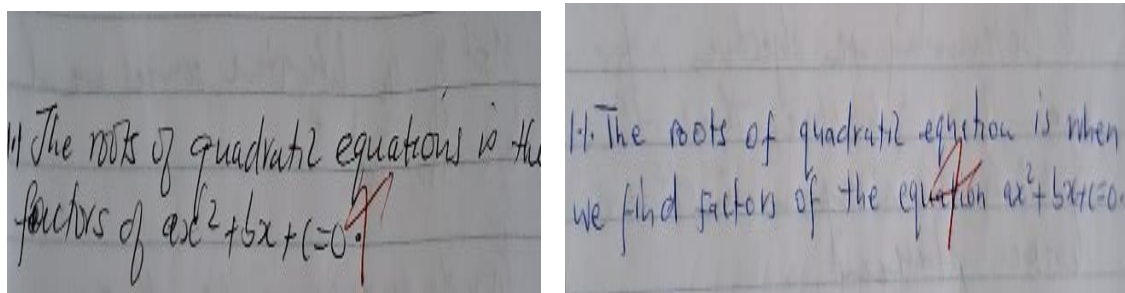 1.1 The roots of quadratic equations is the
factors of ax² + bx + c = 0.
1.1. The roots of quadratic equation is when
we find factors of the equation ax² + bx + c = 0.